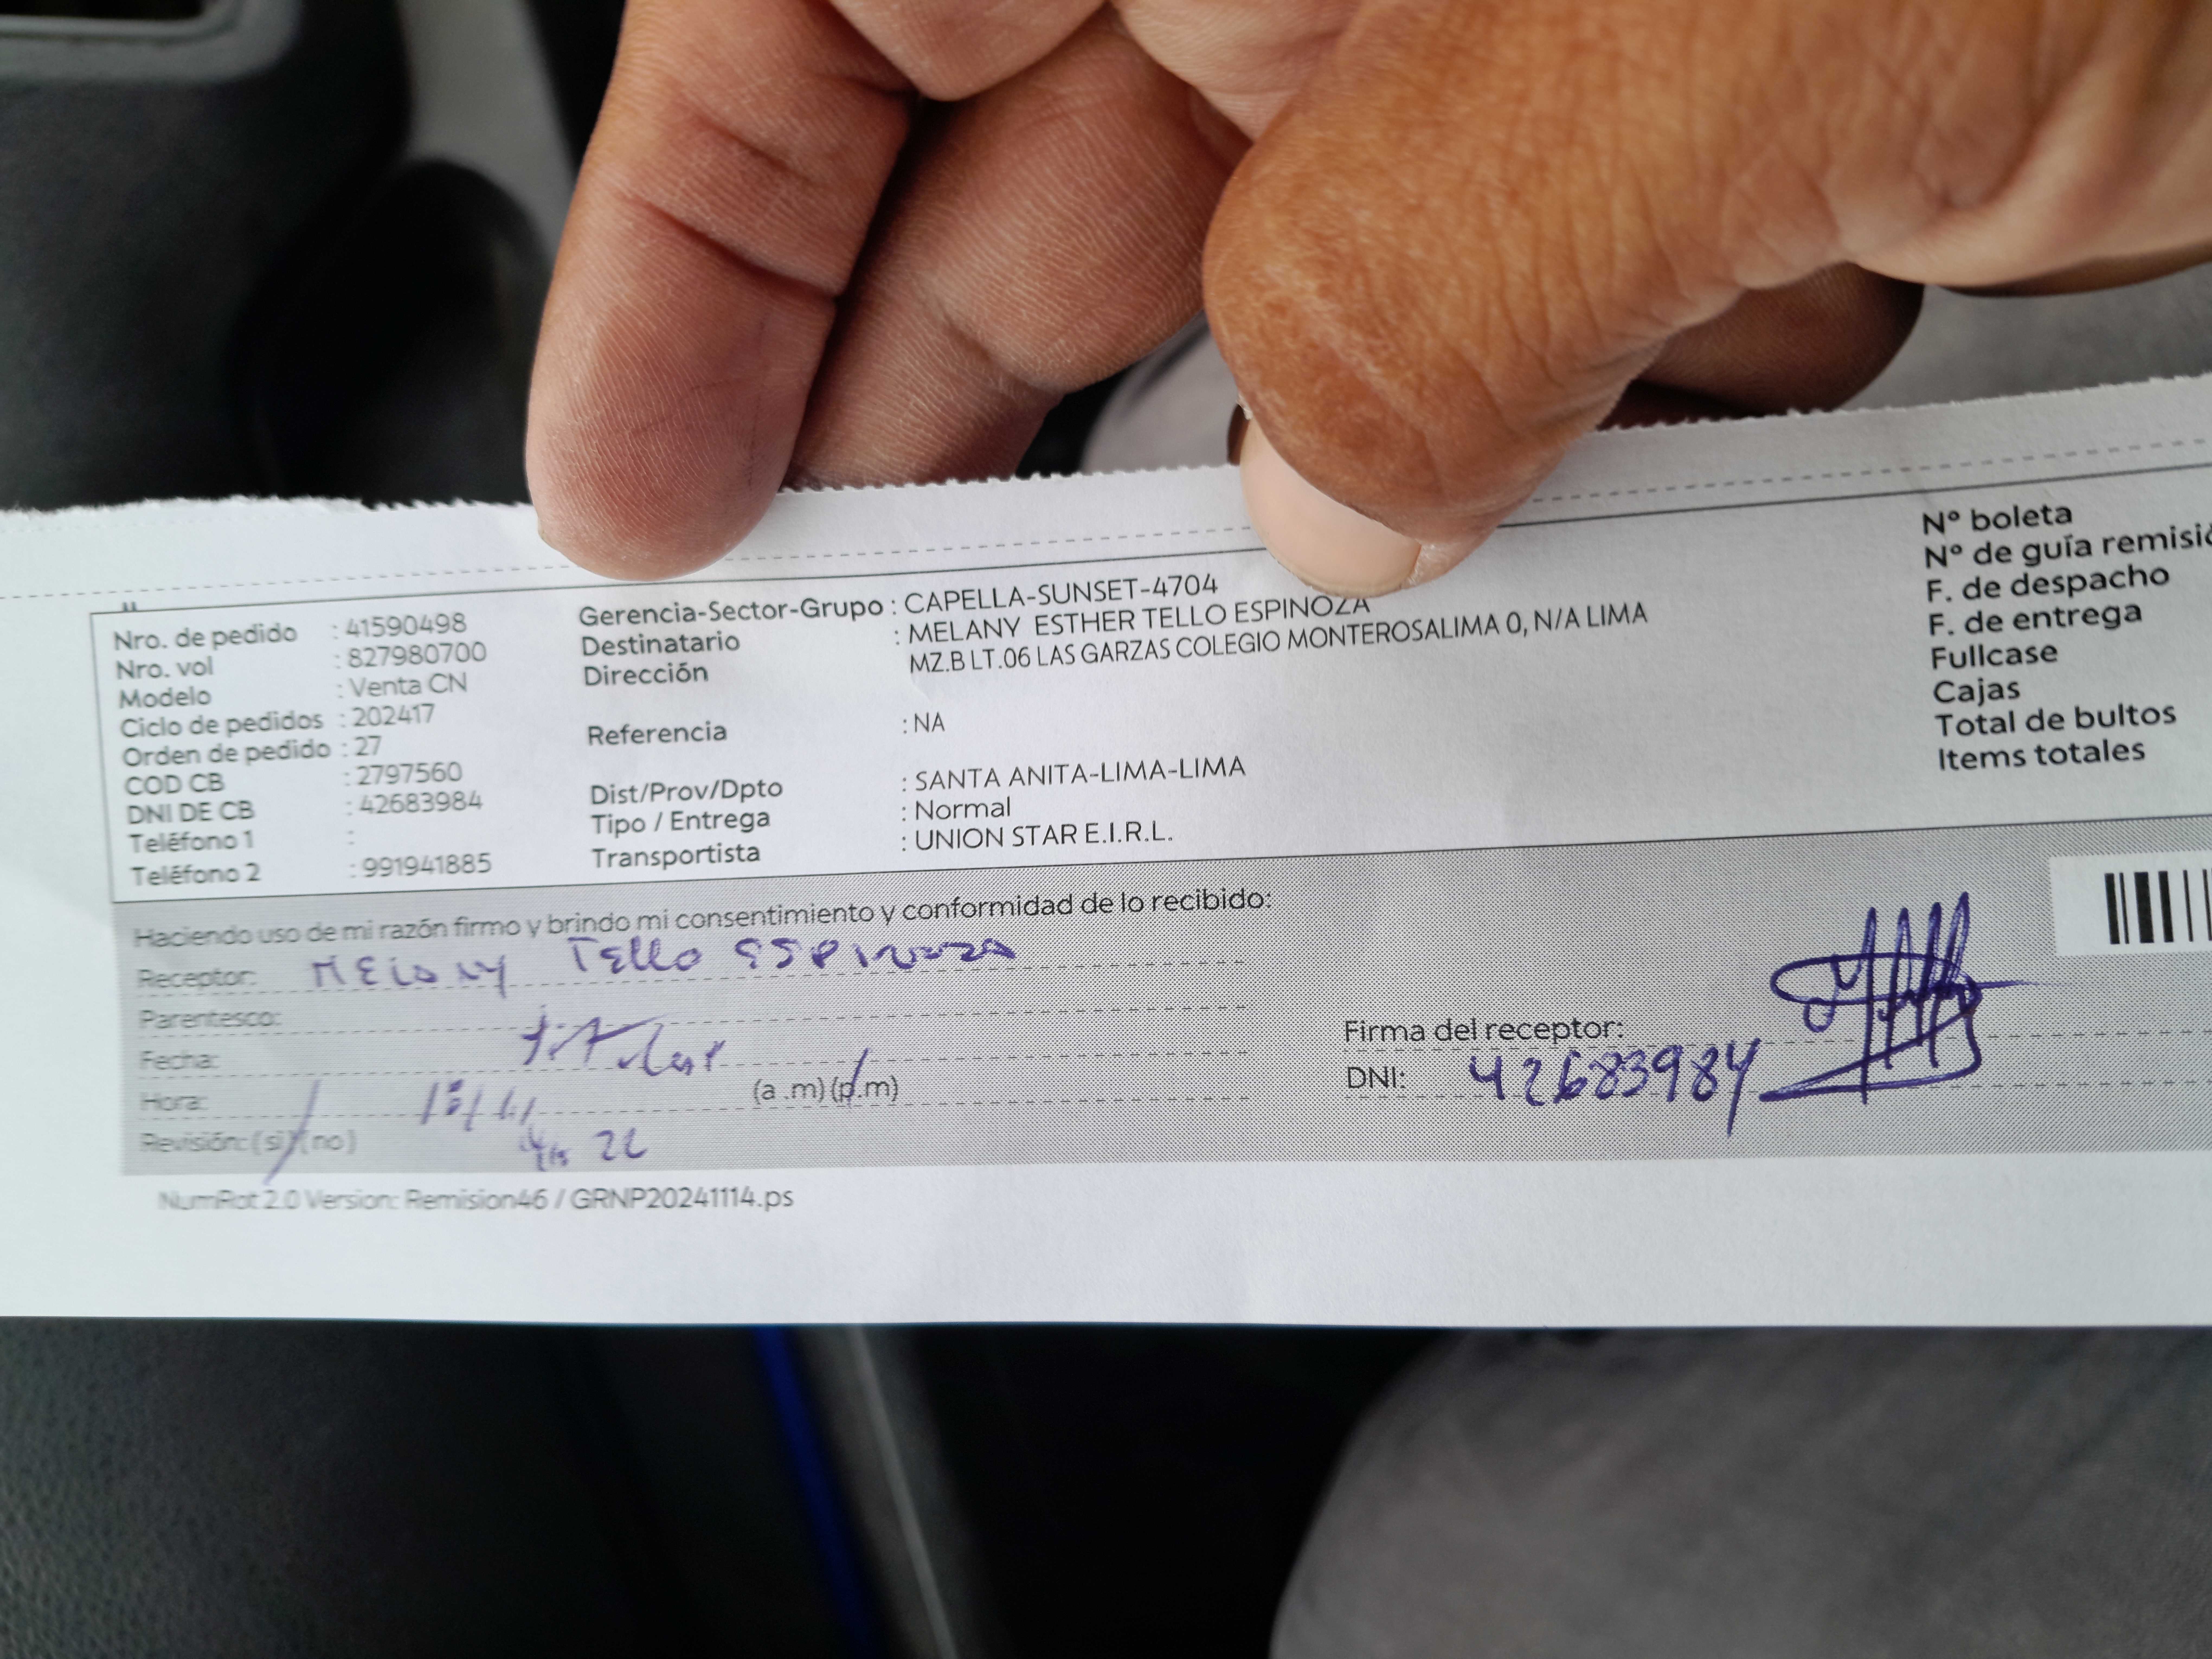 Nro. de pedido : 41590498
Nro. vol : 827980700
Modelo : Venta CN
Ciclo de pedidos : 202417
Orden de pedido : 27
COD CB : 2797560
DNI DE CB : 42683984
Teléfono 1 :
Teléfono 2 : 991941885
Gerencia-Sector-Grupo : CAPELLA-SUNSET-4704
Destinatario : MELANY ESTHER TELLO ESPINOZA
Dirección MZ.B LT.06 LAS GARZAS COLEGIO MONTEROSALIMA 0, N/A LIMA
Referencia : NA
Dist/Prov/Dpto : SANTA ANITA-LIMA-LIMA
Tipo / Entrega : Normal
Transportista : UNION STAR E.I.R.L.
Nº boleta
Nº de guía remisió
F. de despacho
F. de entrega
Fullcase
Cajas
Total de bultos
Items totales
Haciendo uso de mi razón firmo y brindo mi consentimiento y conformidad de lo recibido:
Receptor: MELANY Tello ESPINOZA
Parentesco: titular
Fecha:
Hora: (a .m) (p.m)
Revisión: (si) (no)
Firma del receptor:
DNI: 42683984
NumRot 2.0 Version: Remision46 / GRNP20241114.ps